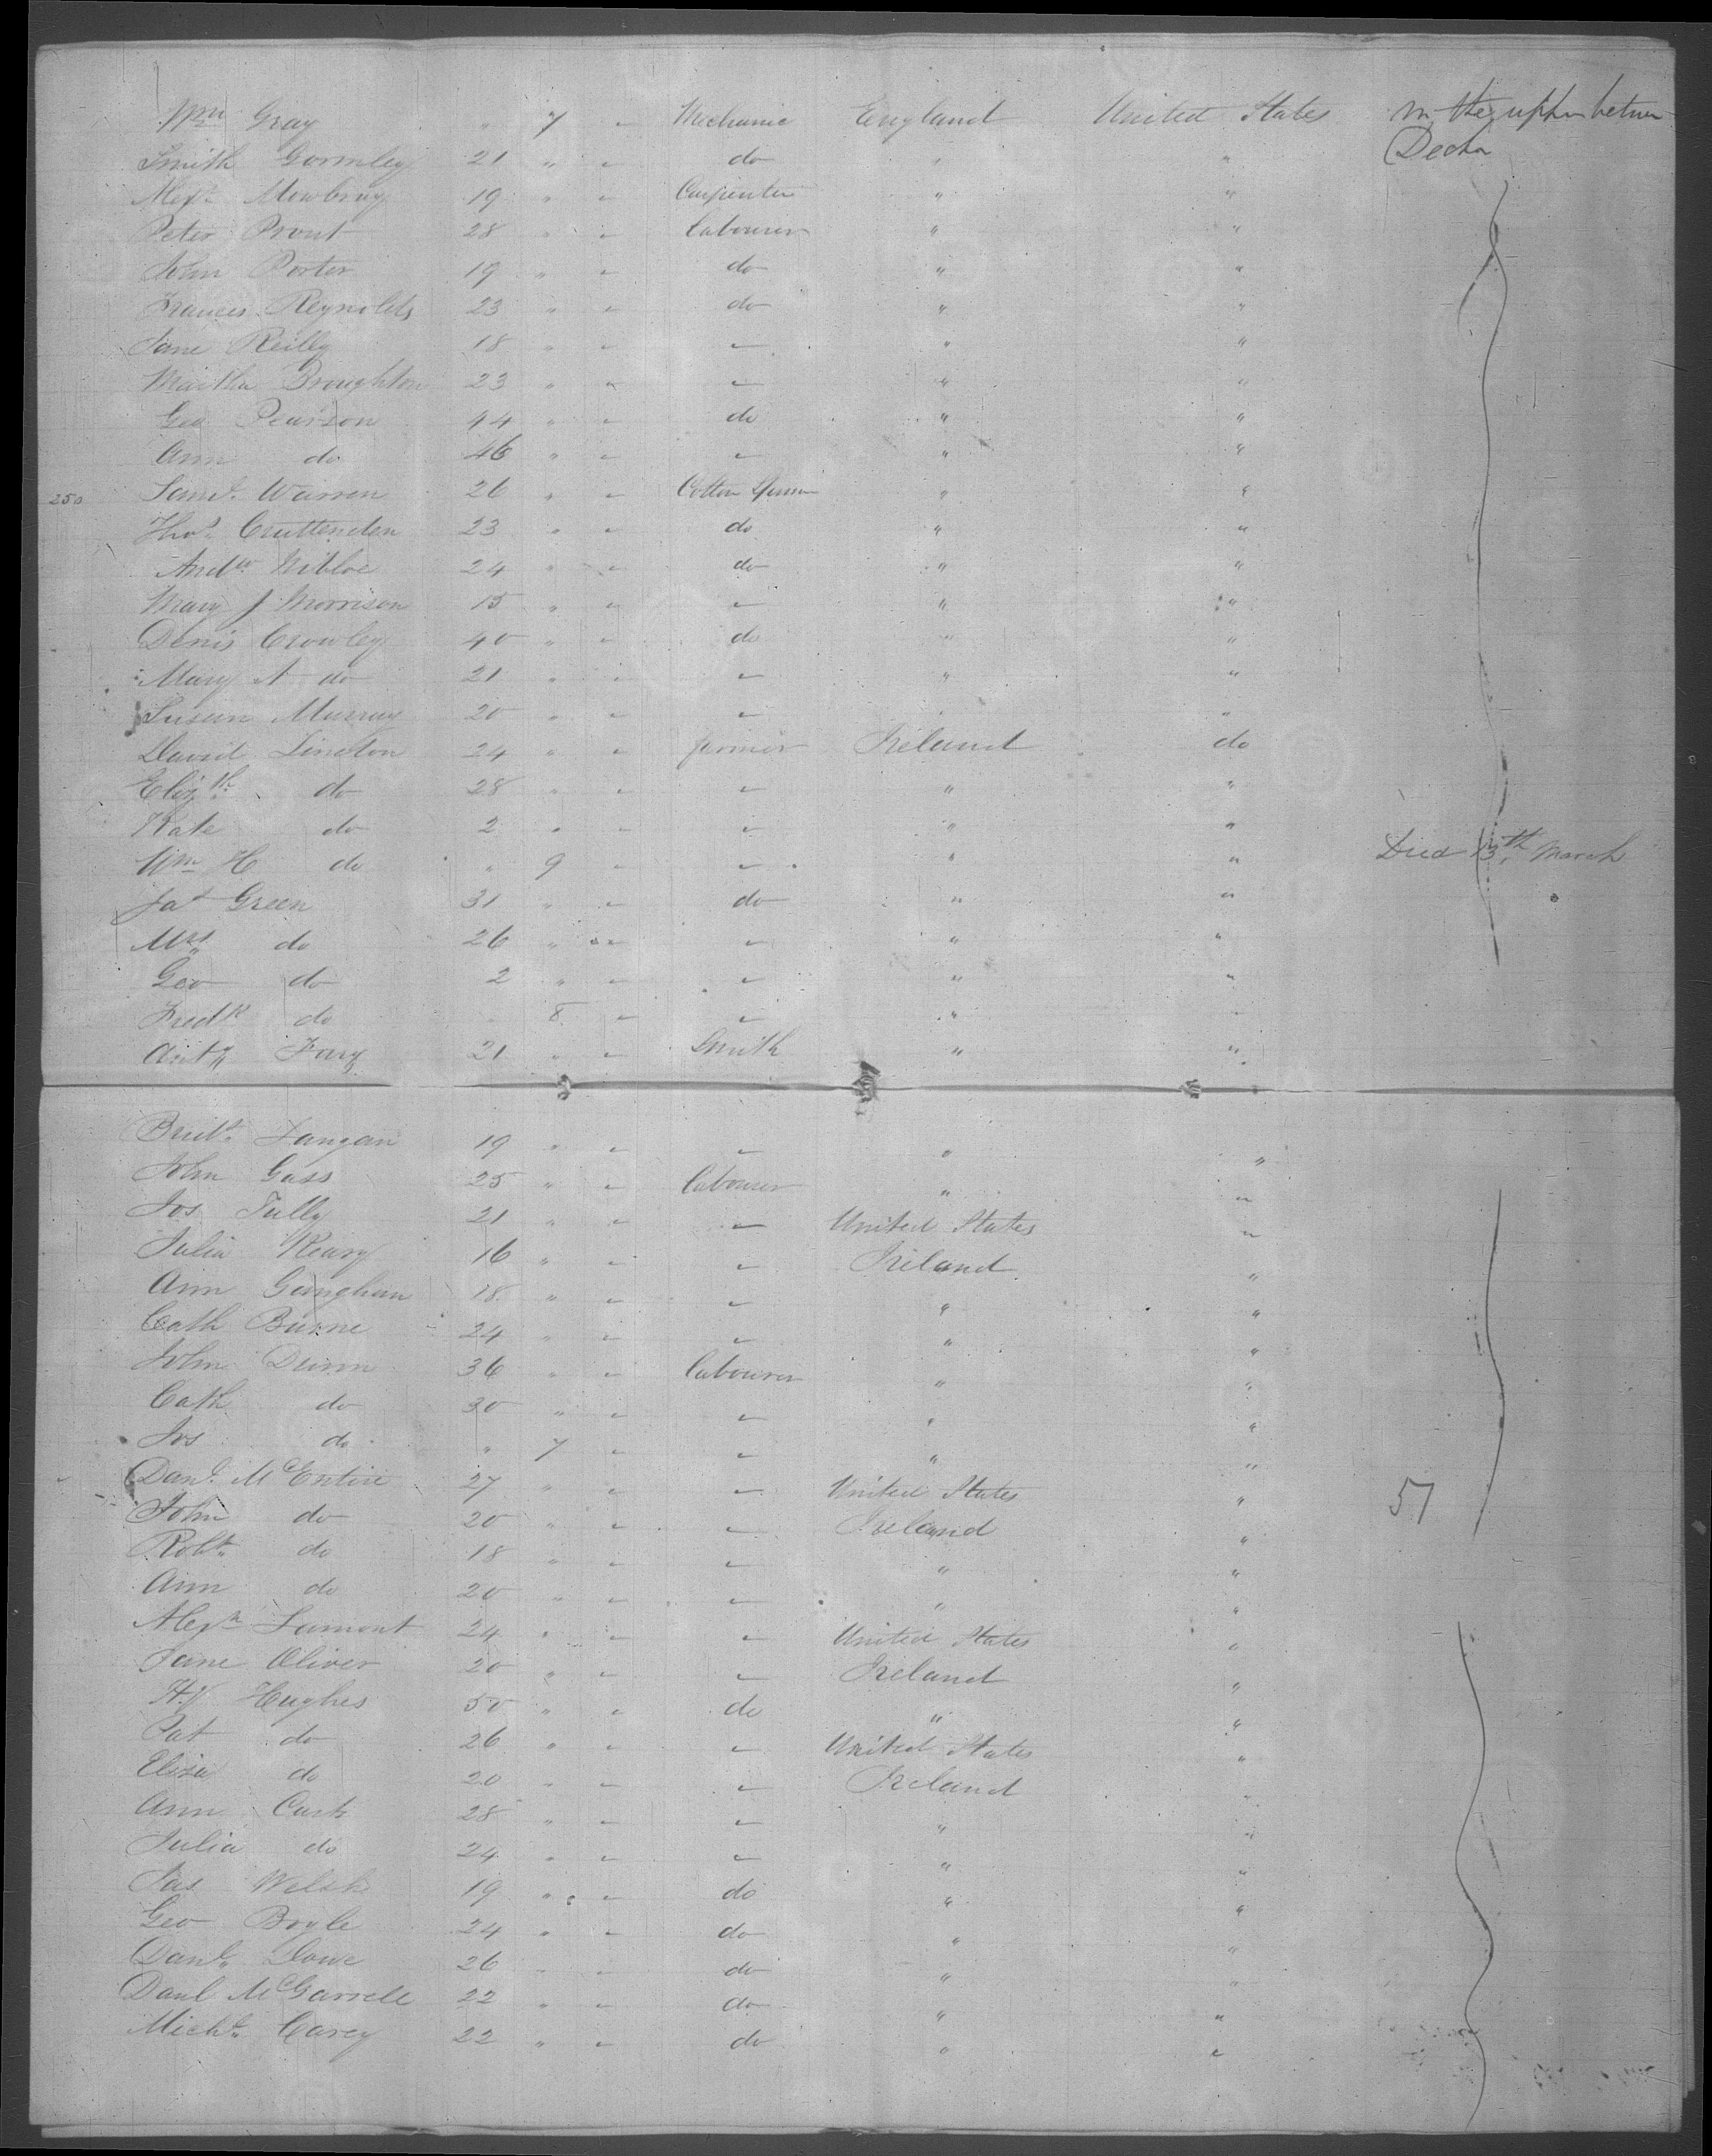 Wm Gray " 7 - Mechanic England United States In the upper between
Smith Gormley 21 " - do " " Decks
Alexr Mowbray 19 " - Carpenter " "
Peter Prout 28 " - Labourer " "
John Porter 19 " - do " "
Frances Reynolds 23 " - do " "
Jane Reilly 18 " - - " "
Martha Broughton 23 " " - " "
Geo Pearson 44 " - do " "
Ann do 46 " - - " "
250 Saml. Warren 26 " - Cotton Spinner " "
Thos. Cruttenden 23 " - do " "
Andw Nibloe 24 " - do " "
Mary J Morrison 15 " - - " "
Denis Crowley 40 " - do " "
Mary A do 21 " - - " "
Susan Murray 20 " - - " "
David Lindton 24 " - farmer Ireland do
Elizth. do 28 " - - " "
Kate do 2 " - - " "
Wm H do " 9 - - " " Died 13th March
Jas Green 31 " - do " "
Mrs do 26 " - - " "
Geo do 2 " - - " "
Fredk do - 8 - - " "
Anty Fary 21 " - Smith " "
Bridt. Langan 19 " - - " "
John Gass 25 " - Labourer " "
Jos Tully 21 " - - United States "
Julia Keary 16 " - - Ireland "
Ann Gaughan 18 " - - " "
Cath Burne 24 " - - " "
John Dunn 36 " - Labourer " "
Cath do 30 " - - " "
Jos do " 7 - - " "
Danl. McEntire 27 " - - United States " 57
John do 20 " - - Ireland "
Robt. do 18 " - - " "
Ann do 20 " - - " "
Alexr Lamont 24 " - - United States "
Jane Oliver 20 " - - Ireland "
Hy Hughes 50 " - do " "
Pat do 26 " - - United States "
Eliza do 20 " - - Ireland "
Ann 28 " - - " "
Julia do 24 " - - " "
Jas Welsh 19 " - do " "
Geo Boyle 24 " - do " "
Danl. Dowe 26 - - do " "
Danl McGarrell 22 " - do " "
Michl. Carey 22 " - do " "